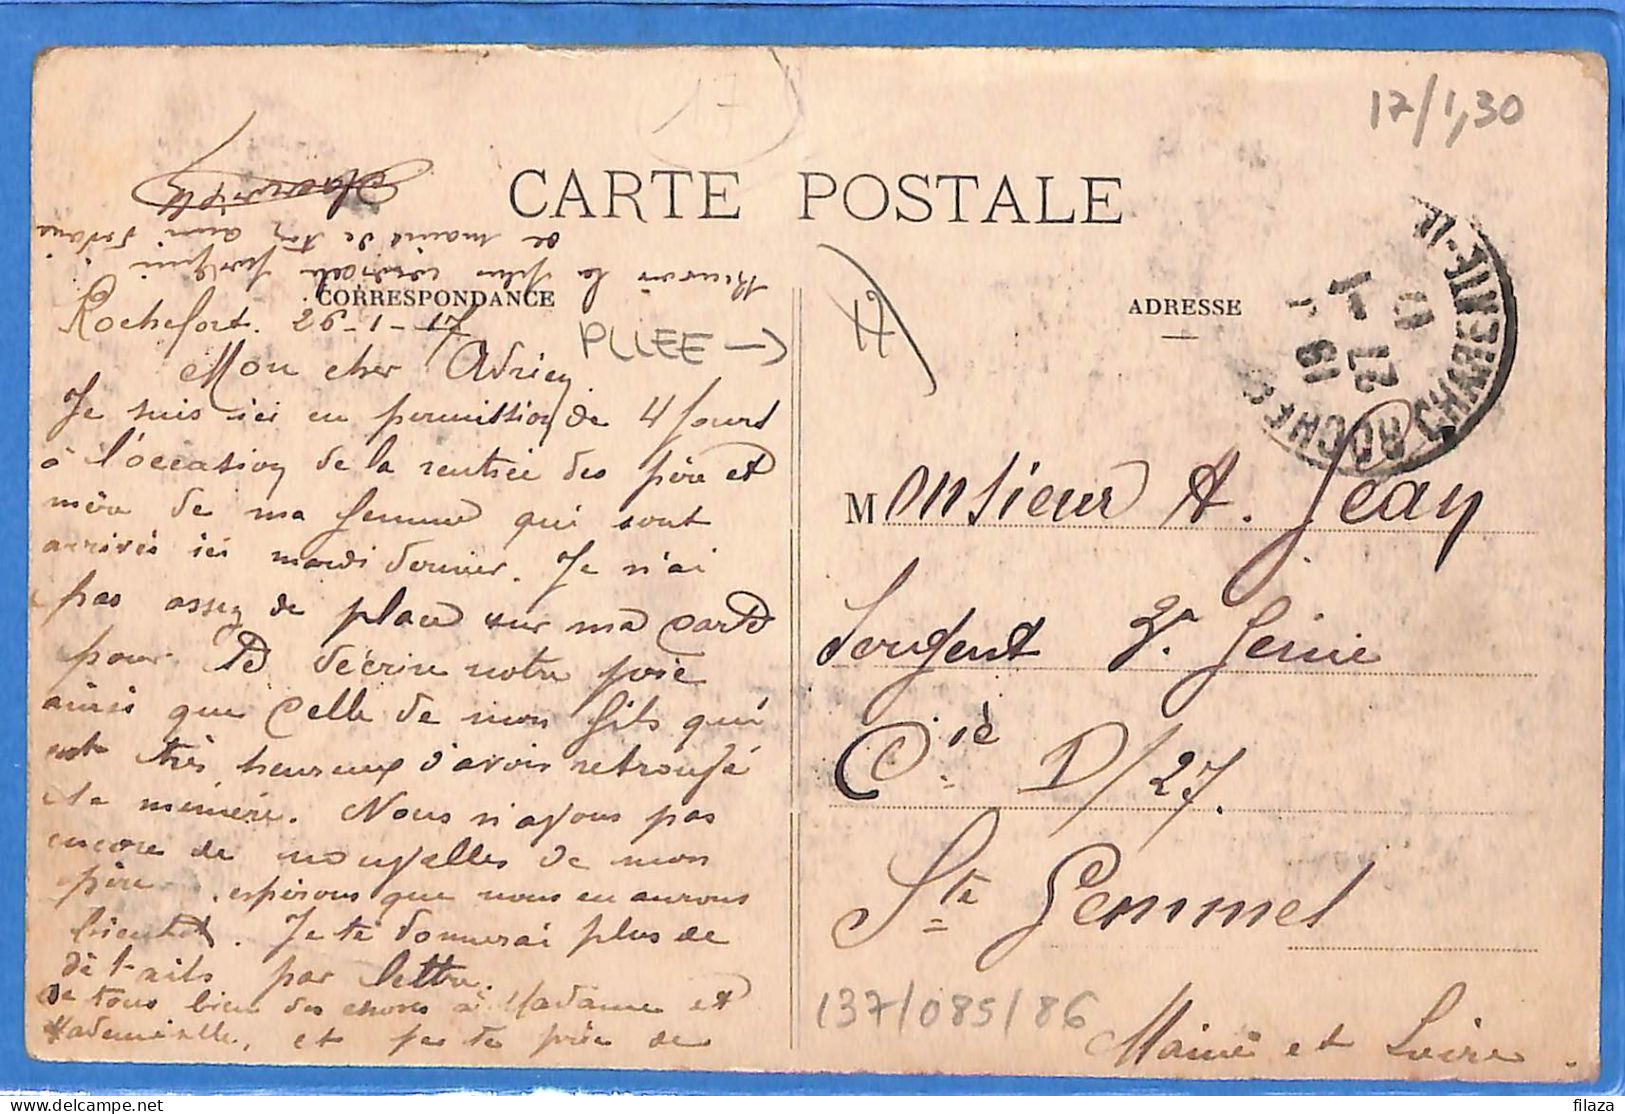 17
17/1,30
CARTE POSTALE
CORRESPONDANCE
ADRESSE
PLIEE →
17
Rochefort. 26-1-17
Mon cher Adrien
Je suis ici en permission de 4 jours
à l'occasion de la rentrée des père et
mère de ma femme qui sont
arrivés ici mardi dernier. Je n'ai
pas assez de place sur ma carte
pour te décrire notre joie
ainsi que celle de mon fils qui
est très heureux d'avoir retrouvé
sa mémère. Nous n'avons pas
encore de nouvelles de mon
père. espérons que nous en aurons
bientôt. Je te donnerai plus de
détails par lettre.
de tous bien des choses à Madame et
Mademoiselle, et je te prie de
recevoir la plus cordiale
de main de ton ami
ROCHEFORT CHARENTE-INF
18
27 - 1
17
Monsieur A. Jean
Sergent 2e Génie
Cie D/27.
Ste Gemmes
Maine et Loire.
137/085/86
filaza